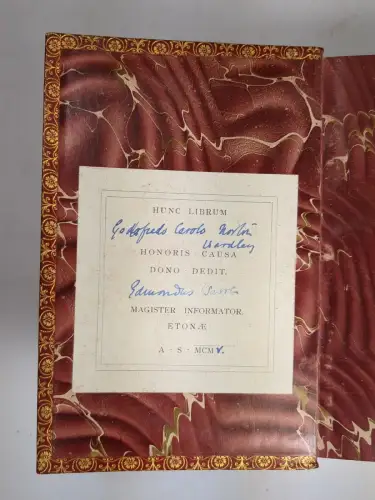 HUNC LIBRUM
Godofredo Carolo Morton
Wardley
HONORIS CAUSA
DONO DEDIT.
Edmondus
MAGISTER INFORMATOR
ETONÆ
A · S · MCMV.